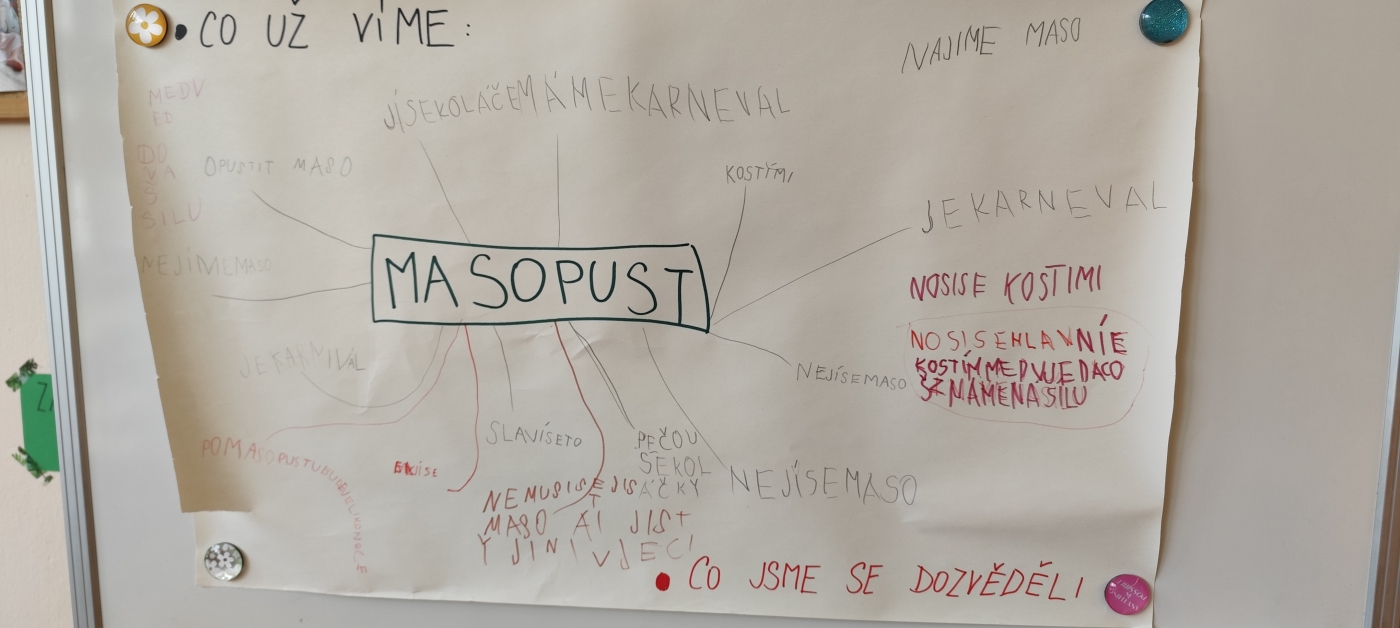 • CO UŽ VÍME:
NAJIME MASO
MEDV
ĚD
DO
VA
S
SILU
JÍSEKOLÁČE
MÁMEKARNEVAL
OPUSTIT MASO
KOSTÝMI
JEKARNEVAL
NEJÍMEMASO
MASOPUST
NOSISE KOSTIMI
NOSISEHLAVNÍE
KOSTÍMMEDVJEDACO
ZNAMENÁSÍLU
NEJÍSEMASO
JEKARNIVÁL
SLAVÍSETO
PEČOU
SEKOL
ÁČKY
POMASOPUSTU
NEJÍSEMASO
NEMUSISEJIST
MASO AI JIST
Y JINÍ VJECI
• CO JSME SE DOZVĚDĚLI